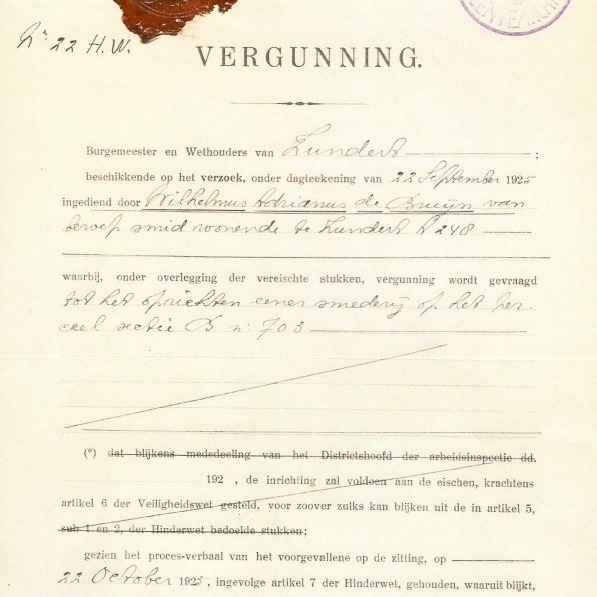 Nr. 22 H.W.
VERGUNNING.
Burgemeester en Wethouders van Zundert ;
beschikkende op het verzoek, onder dagteekening van 22 September 1925
ingediend door Wilhelmus Adrianus de Bruijn van
beroep smid wonende te Zundert A 248
waarbij, onder overlegging der vereischte stukken, vergunning wordt gevraagd
tot het oprichten eener smederij op het per-
ceel sectie B nr 703
(*) dat blijkens mededeeling van het Districtshoofd der arbeidsinspectie dd.
192 , de inrichting zal voldoen aan de eischen, krachtens
artikel 6 der Veiligheidswet gesteld, de voor zoover zulks kan blijken uit de in artikel 5,
sub 1 en 2, der Hinderwet bedoelde stukken;
gezien het proces-verbaal van het voorgevallene op de zitting, op
22 October 1925, ingevolge artikel 7 der Hinderwet, gehouden, waaruit blijkt,